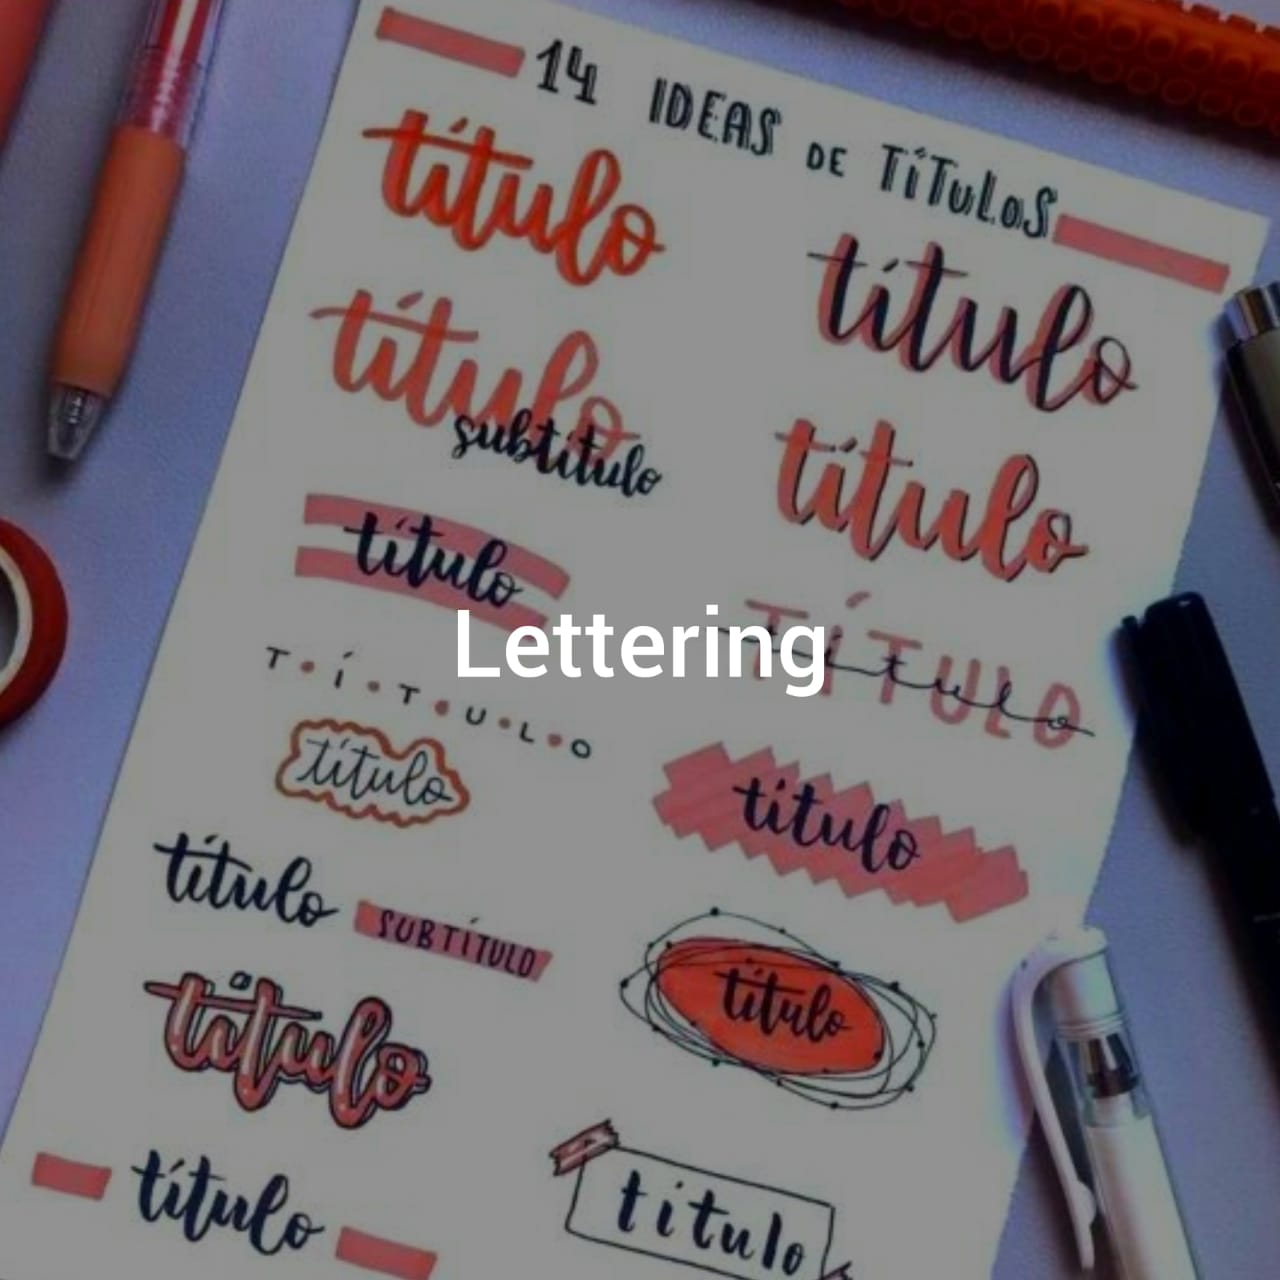 14 IDEAS DE TÍTULOS
título
título
título
subtítulo
título
título
Lettering
TÍTULO
título
T·Í·T·U·L·O
título
título
título
SUBTÍTULO
título
título
título
título